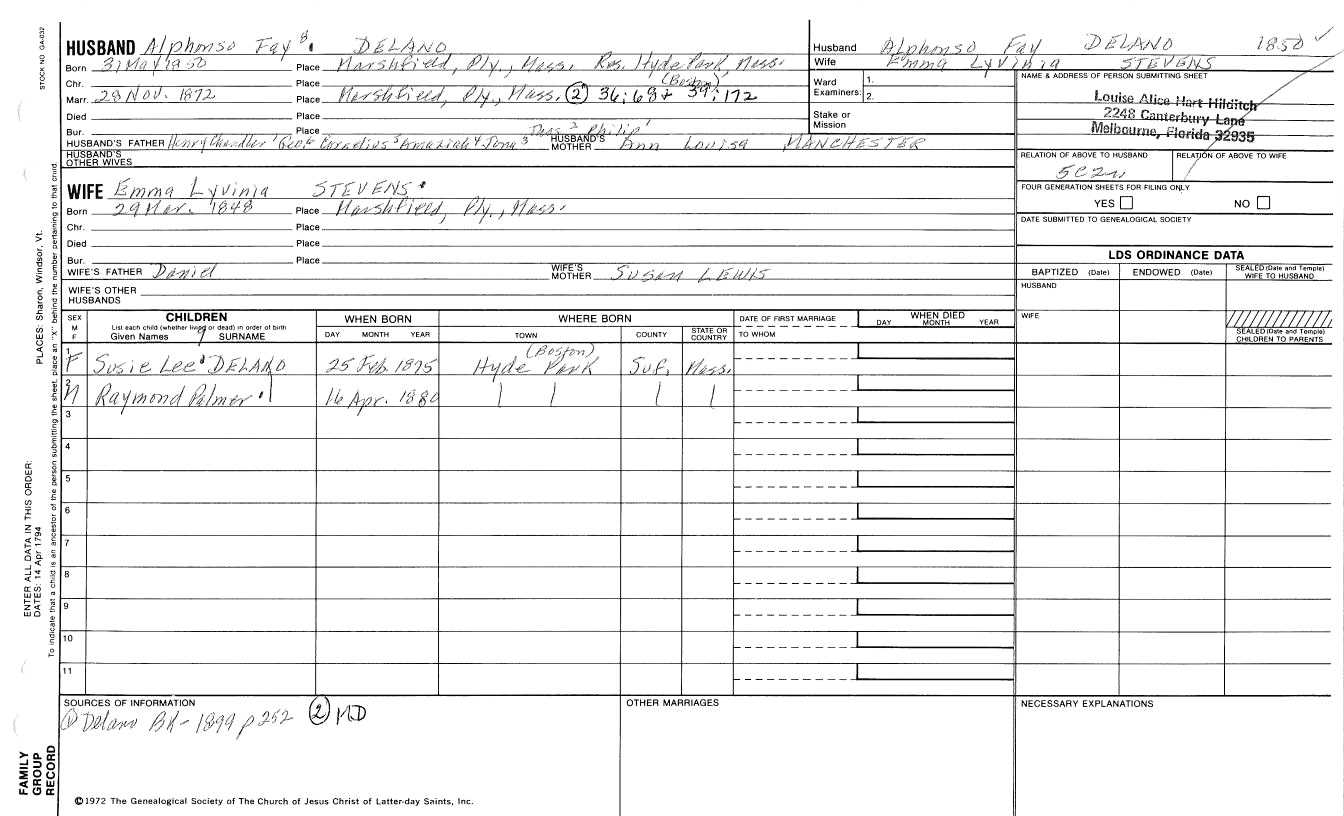 STOCK NO. GA-032
HUSBAND Alphonso Fay 8 DELANO
Born 31 May 1850 Place Marshfield, Ply., Mass. Res. Hyde Park, Mass.
Chr. Place (Boston)
Marr. 28 Nov. 1872 Place Marshfield, Ply., Mass. (2) 36:68+ 39:172
Died Place
Bur. Place Thos 2 Philip 1
HUSBAND'S FATHER Henry Chandler 7 Geo. 6 Cornelius 5 Amaziah 4 Jona 3 HUSBAND'S MOTHER Ann Louisa MANCHESTER
HUSBAND'S OTHER WIVES
WIFE Emma Lyvinia STEVENS
Born 29 Mar. 1848 Place Marshfield, Ply., Mass.
Chr. Place
Died Place
Bur. Place
WIFE'S FATHER Daniel WIFE'S MOTHER Susan LEWIS
WIFE'S OTHER HUSBANDS
Husband Alphonso Fay DELANO 1850 ✓
Wife Emma Lyvinia STEVENS
Ward Examiners: 1. 2.
Stake or Mission
NAME & ADDRESS OF PERSON SUBMITTING SHEET
Louise Alice Hart Hilditch
2248 Canterbury Lane
Melbourne, Florida 32935
RELATION OF ABOVE TO HUSBAND RELATION OF ABOVE TO WIFE
5C2r
FOUR GENERATION SHEETS FOR FILING ONLY
YES NO
DATE SUBMITTED TO GENEALOGICAL SOCIETY
LDS ORDINANCE DATA
BAPTIZED (Date) ENDOWED (Date) SEALED (Date and Temple) WIFE TO HUSBAND
HUSBAND
WIFE
SEALED (Date and Temple) CHILDREN TO PARENTS
SEX M F
CHILDREN
List each child (whether living or dead) in order of birth
Given Names 9 SURNAME
WHEN BORN
DAY MONTH YEAR
WHERE BORN
TOWN COUNTY STATE OR COUNTRY
DATE OF FIRST MARRIAGE
TO WHOM
WHEN DIED
DAY MONTH YEAR
1 F Susie Lee DELANO 25 Feb. 1875 (Boston) Hyde Park Suf. Mass.
2 M Raymond Palmer 16 Apr. 1880
3
4
5
6
7
8
9
10
11
SOURCES OF INFORMATION
(1) Delano BK - 1899 p 252 (2) MD
OTHER MARRIAGES
NECESSARY EXPLANATIONS
©1972 The Genealogical Society of The Church of Jesus Christ of Latter-day Saints, Inc.
PLACES: Sharon, Windsor, Vt.
To indicate that a child is an ancestor of the person submitting the sheet, place an "X" behind the number pertaining to that child.
ENTER ALL DATA IN THIS ORDER:
DATES: 14 Apr 1794
FAMILY GROUP RECORD